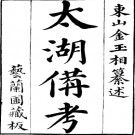 東山金玉相纂述
太湖備考
藝蘭圃藏板